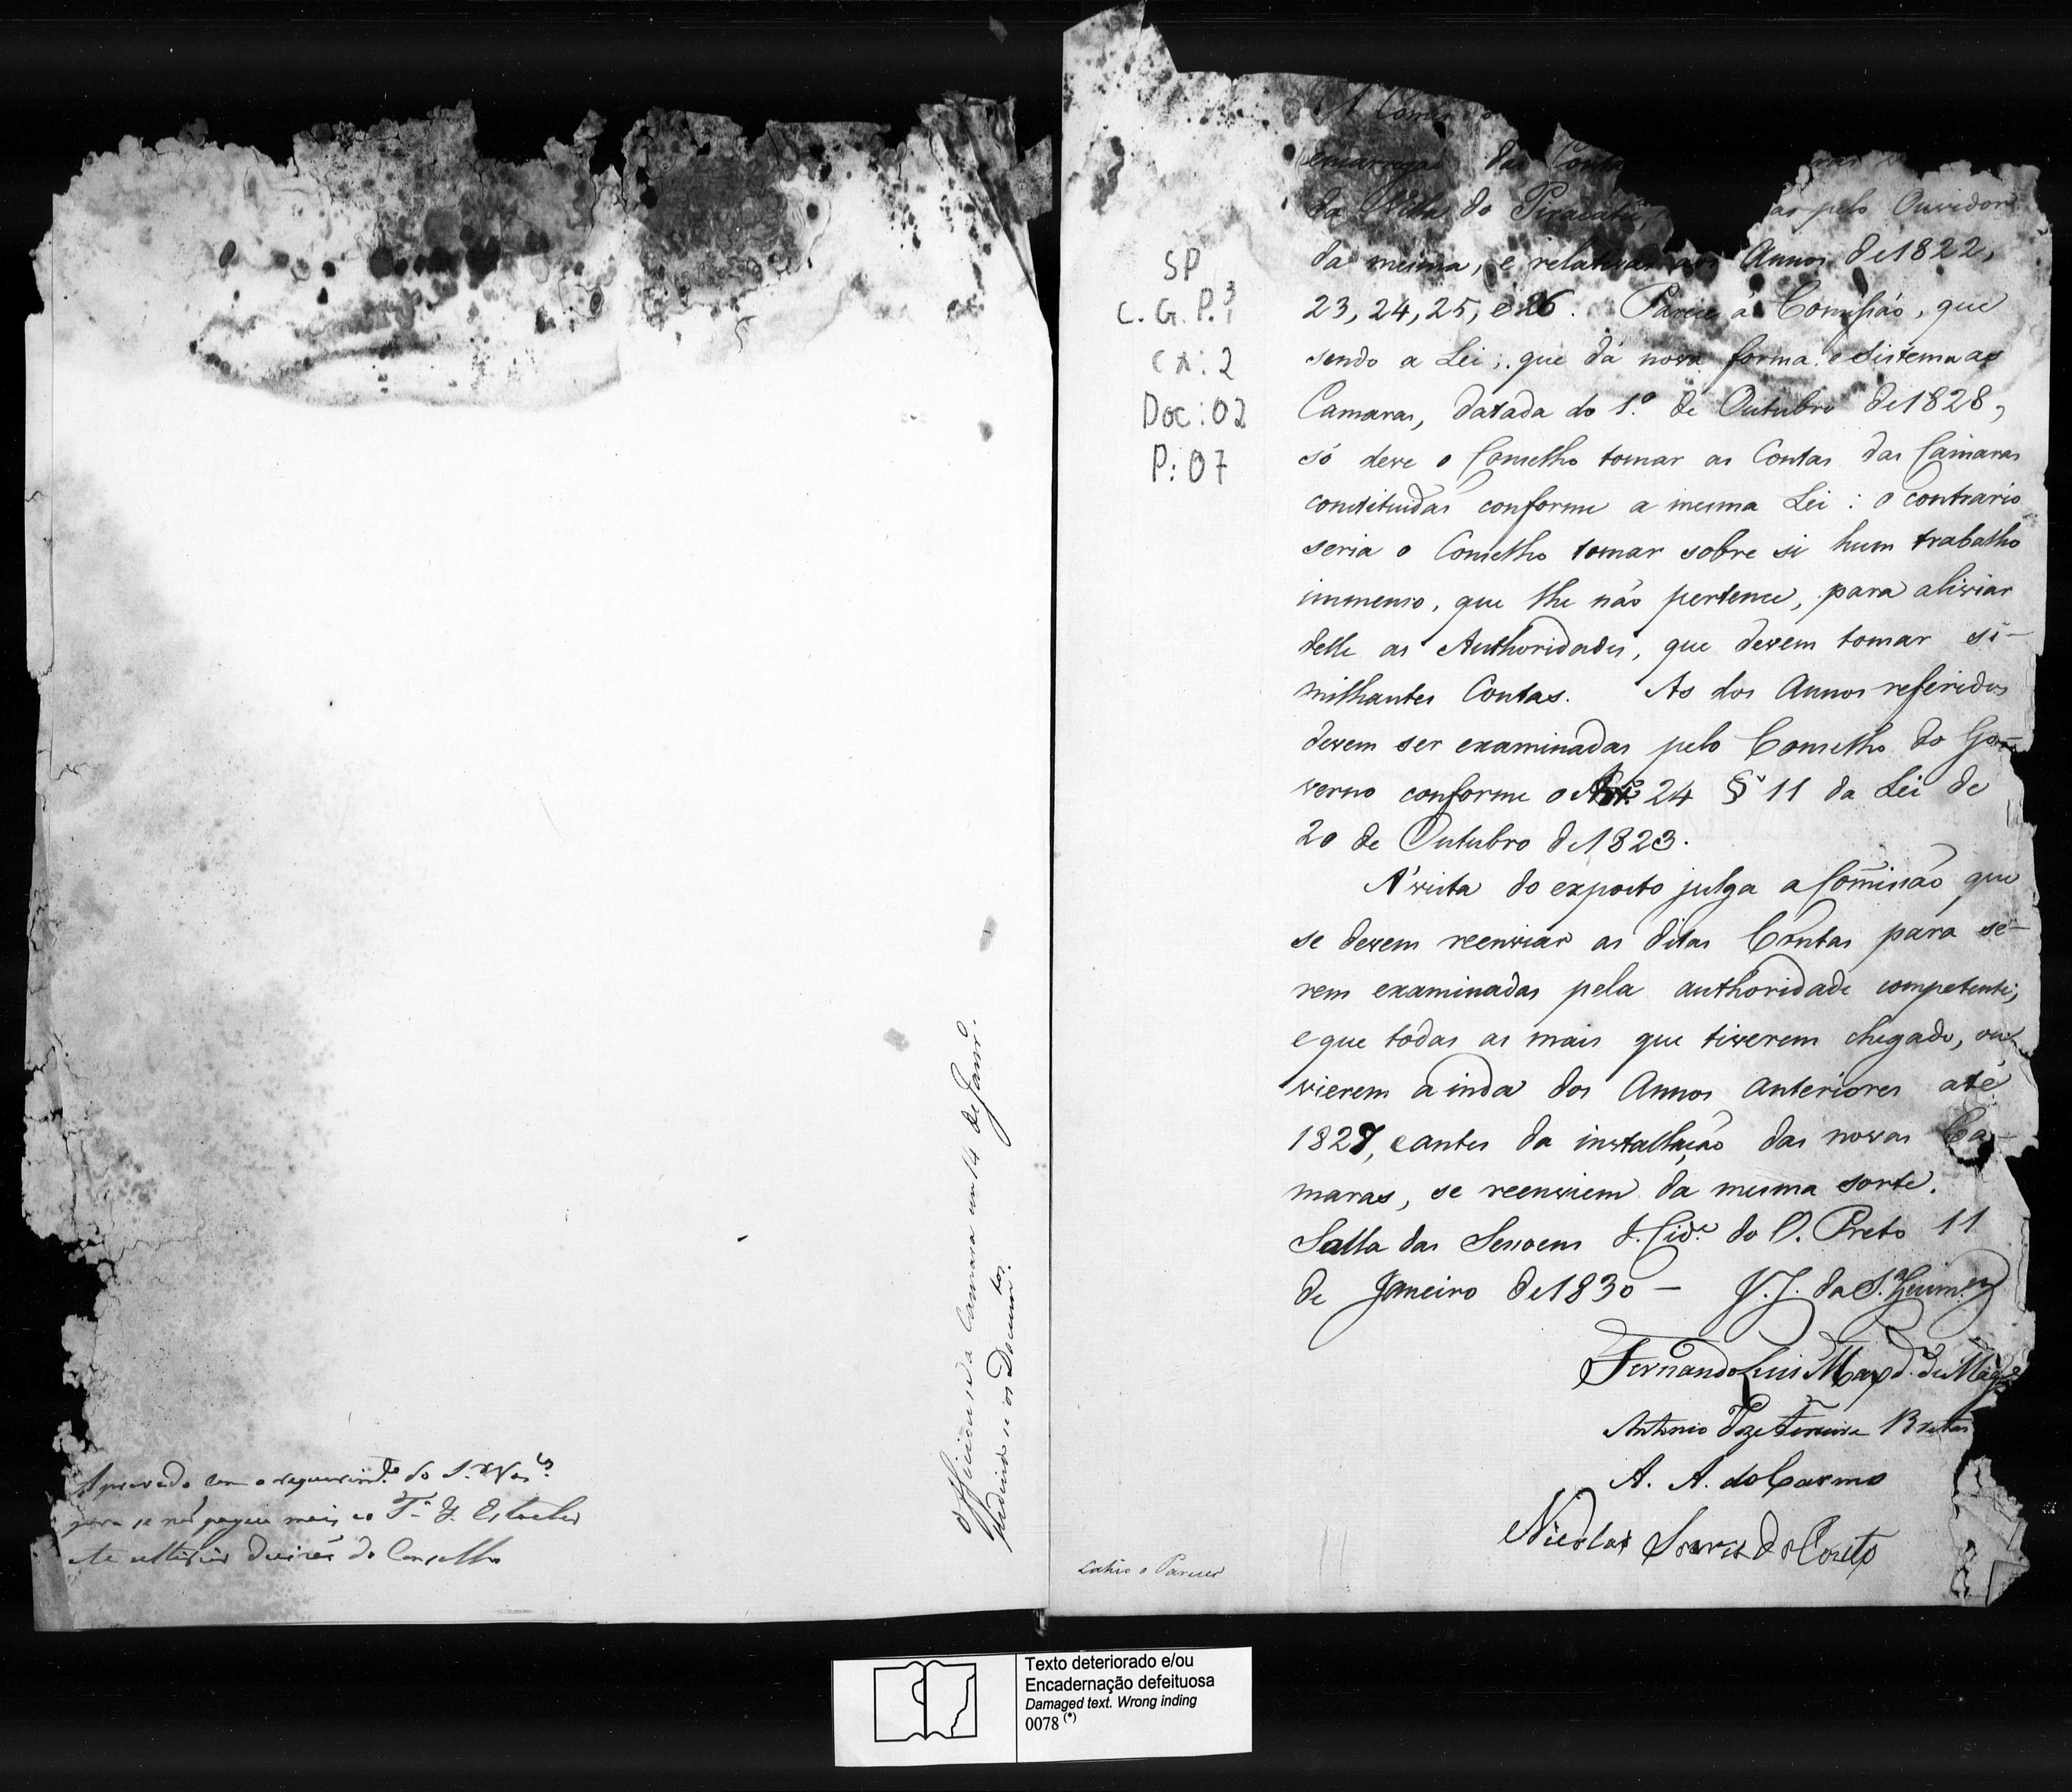 Aprovado com o requerim.to do S.r Vas.cos
para se não pagou mais ao
the ulterior decisão do Conselho
Officiou-se a Camara em 14 de Janr.o
pedindo-se os Docum.tos
SP
C.G.P.1
cx: 2
Doc: 02
P: 07
A Comis
encarrega das Contas
da Villa do Piracatú, as pelo Ouvidor
da mesma, e relativas aos Annos de 1822,
23, 24, 25, e 26. Parece á Comissão, que
sendo a Lei, que dá nova forma e Sistema as
Camaras, datada do 1.º de Outubro de 1828,
só deve o Conselho tomar as Contas das Camaras
constituidas conforme a mesma Lei: o contrario
seria o Conselho tomar sobre si hum trabalho
immenso, que lhe não pertence, para aliviar
delle as Authoridades, que devem tomar si-
milhantes Contas. As dos Annos referidos
devem ser examinadas pelo Conselho do Go-
verno conforme o Art.º 24 § 11 da Lei de
20 de Outubro de 1823.
A' vista do exposto julga a Comissão que
se devem reenviar as ditas Contas para se-
rem examinadas pela authoridade competente;
e que todas as mais que tiverem chegado, ou
vierem ainda dos Annos anteriores até
1827, e antes da installação das novas Ca-
maras, se reenviem da mesma sorte.
Salla das Sessoens I. Cid.e do O. Preto 11
de Janeiro de 1830 — J. J. da S.a Guim.es
Fernando Luis Maxd.o de Mag.es
Antonio Joze Ferreira Bretas
A. A. do Carmo
Nicolao Soares do Couto
Parecer
Texto deteriorado e/ou
Encadernação defeituosa
Damaged text. Wrong inding
0078 (*)